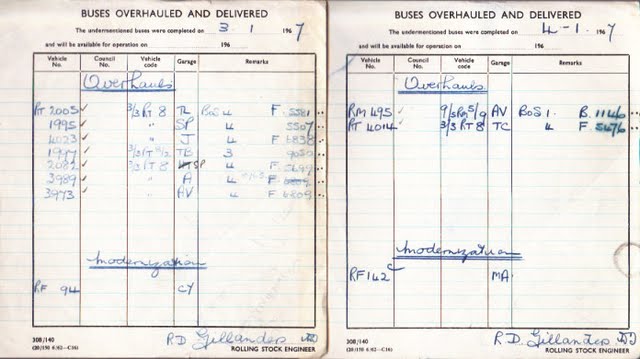 BUSES OVERHAULED AND DELIVERED
The undermentioned buses were completed on 3 · 1 1967
and will be available for operation on 196
Vehicle No. Council No. Vehicle code Garage Remarks
Overhauls
RT 2005 ✓ 3/3 RT 8 TL BoS 4 F 5581
1995 ✓ " SP 4 F 5507
4023 ✓ " J 4 F 6838
1997 ✓ TB 3
2082 ✓ 3/3 RT 8 SP 4 F
3989 ✓ " A 4 F
3973 ✓ " AV 4 F 6809
Modernization
RF 94 CY
308/140
R.D. Gillanders
(20/150 6/62—C16) ROLLING STOCK ENGINEER
BUSES OVERHAULED AND DELIVERED
The undermentioned buses were completed on 4 - 1 · 1967
and will be available for operation on 196
Vehicle No. Council No. Vehicle code Garage Remarks
Overhauls
RM 495 ✓ AV BoS 1 B 1146
RT 4014 ✓ 3/3 RT 8 TC 4 F 5476
Modernization
RF 142 MA
308/140
R.D. Gillanders
(20/150 6/62—C16) ROLLING STOCK ENGINEER